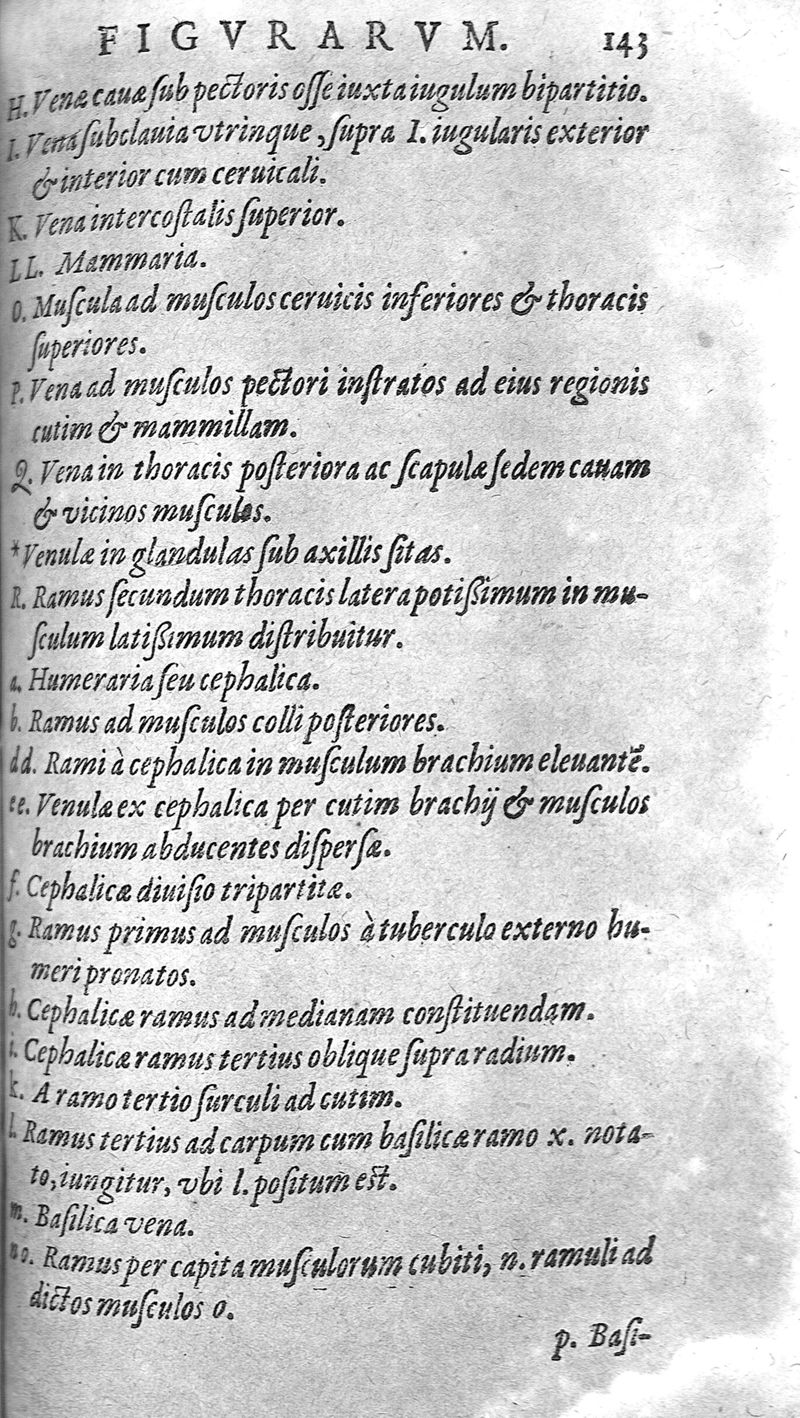 FIGVRARVM. 143
H. Venæ cauæ ſub pectoris oſſe iuxta iugulum bipartitio.
I. Vena ſubclauia vtrinque, ſupra I. iugularis exterior
& interior cum ceruicali.
K. Vena intercoſtalis ſuperior.
LL. Mammaria.
O. Muſcula ad muſculos ceruicis inferiores & thoracis
ſuperiores.
P. Vena ad muſculos pectori inſtratos ad eius regionis
cutim & mammillam.
Q. Vena in thoracis poſteriora ac ſcapulæ ſedem cauam
& vicinos muſculos.
* Venulæ in glandulas ſub axillis ſitas.
R. Ramus ſecundum thoracis latera potißimum in mu-
ſculum latißimum diſtribuitur.
a. Humeraria ſeu cephalica.
b. Ramus ad muſculos colli poſteriores.
dd. Rami à cephalica in muſculum brachium eleuantẽ.
ee. Venulæ ex cephalica per cutim brachij & muſculos
brachium abducentes diſperſæ.
f. Cephalicæ diuiſio tripartitæ.
g. Ramus primus ad muſculos à tuberculo externo hu-
meri pronatos.
h. Cephalicæ ramus ad medianam conſtituendam.
i. Cephalicæ ramus tertius oblique ſupra radium.
k. A ramo tertio ſurculi ad cutim.
l. Ramus tertius ad carpum cum baſilicæ ramo x. nota-
to, iungitur, vbi l. poſitum eſt.
m. Baſilica vena.
no. Ramus per capita muſculorum cubiti, n. ramuli ad
dictos muſculos o.
p. Baſi-